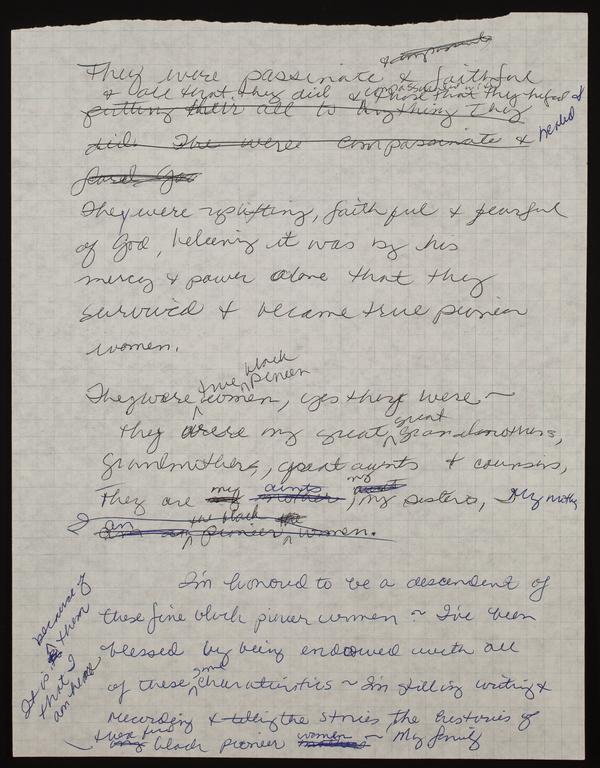 & compassionate
They were passinate & faithful
& all that they did & compassionate w/ those that they helped &
putting their all to anything They healed
did. The were compassinate &
They were uplifting, faithful & fearful
of God, beleeving it was by his
mercy & power alone that they
survived & became true pioneer
women.
They were true black pioneer women, yes they were ~
they were my great, great grandmothers,
grandmothers, great aunts & cousins,
They are my aunts mother, my sisters, My mother
I am the black pioneer women.
I'm honored to be a descendent of
these fine black pioneer women ~ I've been
blessed by being endowed with all
of these fine characteristics ~ I'm still writing &
recording & telling the stories, the histories of
these fine black pioneer women mothers ~ My family
It is because of them
that I
am here